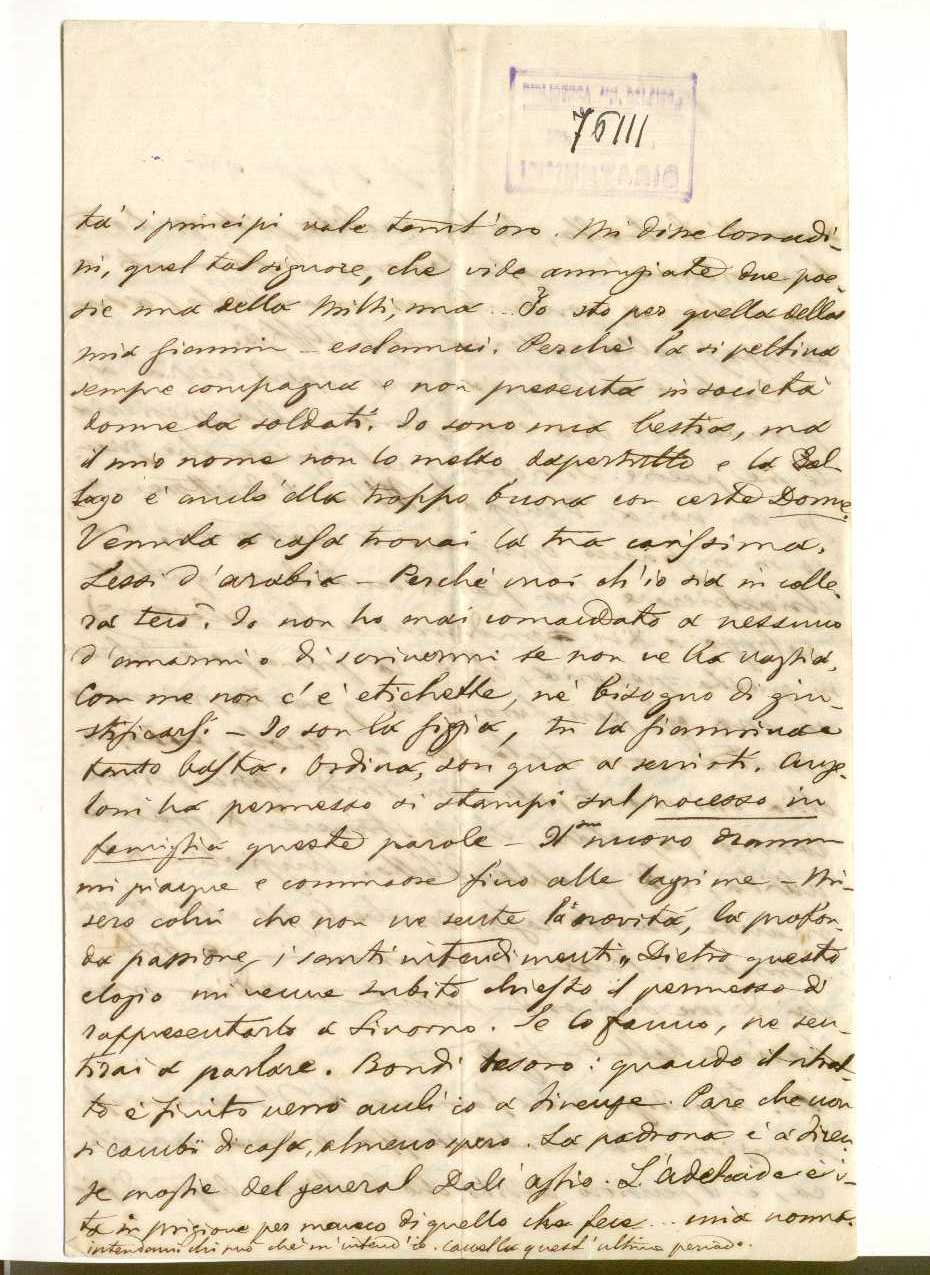 75111
tà i principi vale tant'oro. Mi disse Corradi-
ni, quel tal signore, che vide annunziate due poe-
sie una della Milli, una ... Io sto per quella della
mia Giannin - esclamai. Perchè la si pettina
sempre compagna e non presenta in società
donne da soldati. Io sono una bestia, ma
il mio nome non lo metto dapertutto e la
è anch'ella troppo buona con certe Donne.
Venuta a casa trovai la tua carissima.
Lessi d'arabia - Perchè mai ch'io sia in colle-
ra teco? Io non ho mai comandato a nessuno
d'amarmi o di scrivermi se non ne ha voglia.
Con me non c'è etichette, nè bisogno di giu-
stificarsi. - Io son la Gigia, tu la Giannina e
tanto basta. Ordina, son qua a servirti. Ange-
loni ha permesso si stampi sul processo in
famiglia queste parole - Il suo nuovo dramma
mi piacque e commosse fino alle lagrime - Mi-
sero colui che non ne sente la novità, la profon-
da passione, i santi intendimenti" Dietro questo
elogio mi venne subito chiesto il permesso di
rappresentarlo a Livorno. Se lo fanno, ne sen-
tirai a parlare. Bondì tesoro: quando il ritrat-
to è finito verrò anch'io a Firenze. Pare che non
si cambi di casa, almeno spero. La padrona è a Firen
ze moglie del general Dall'Aglio. L'Adelaide è i-
ta in prigione per meno di quello che fece ... mia nonna.
intendami chi può che m'intend'io. cancella quest'ultimo periodo.